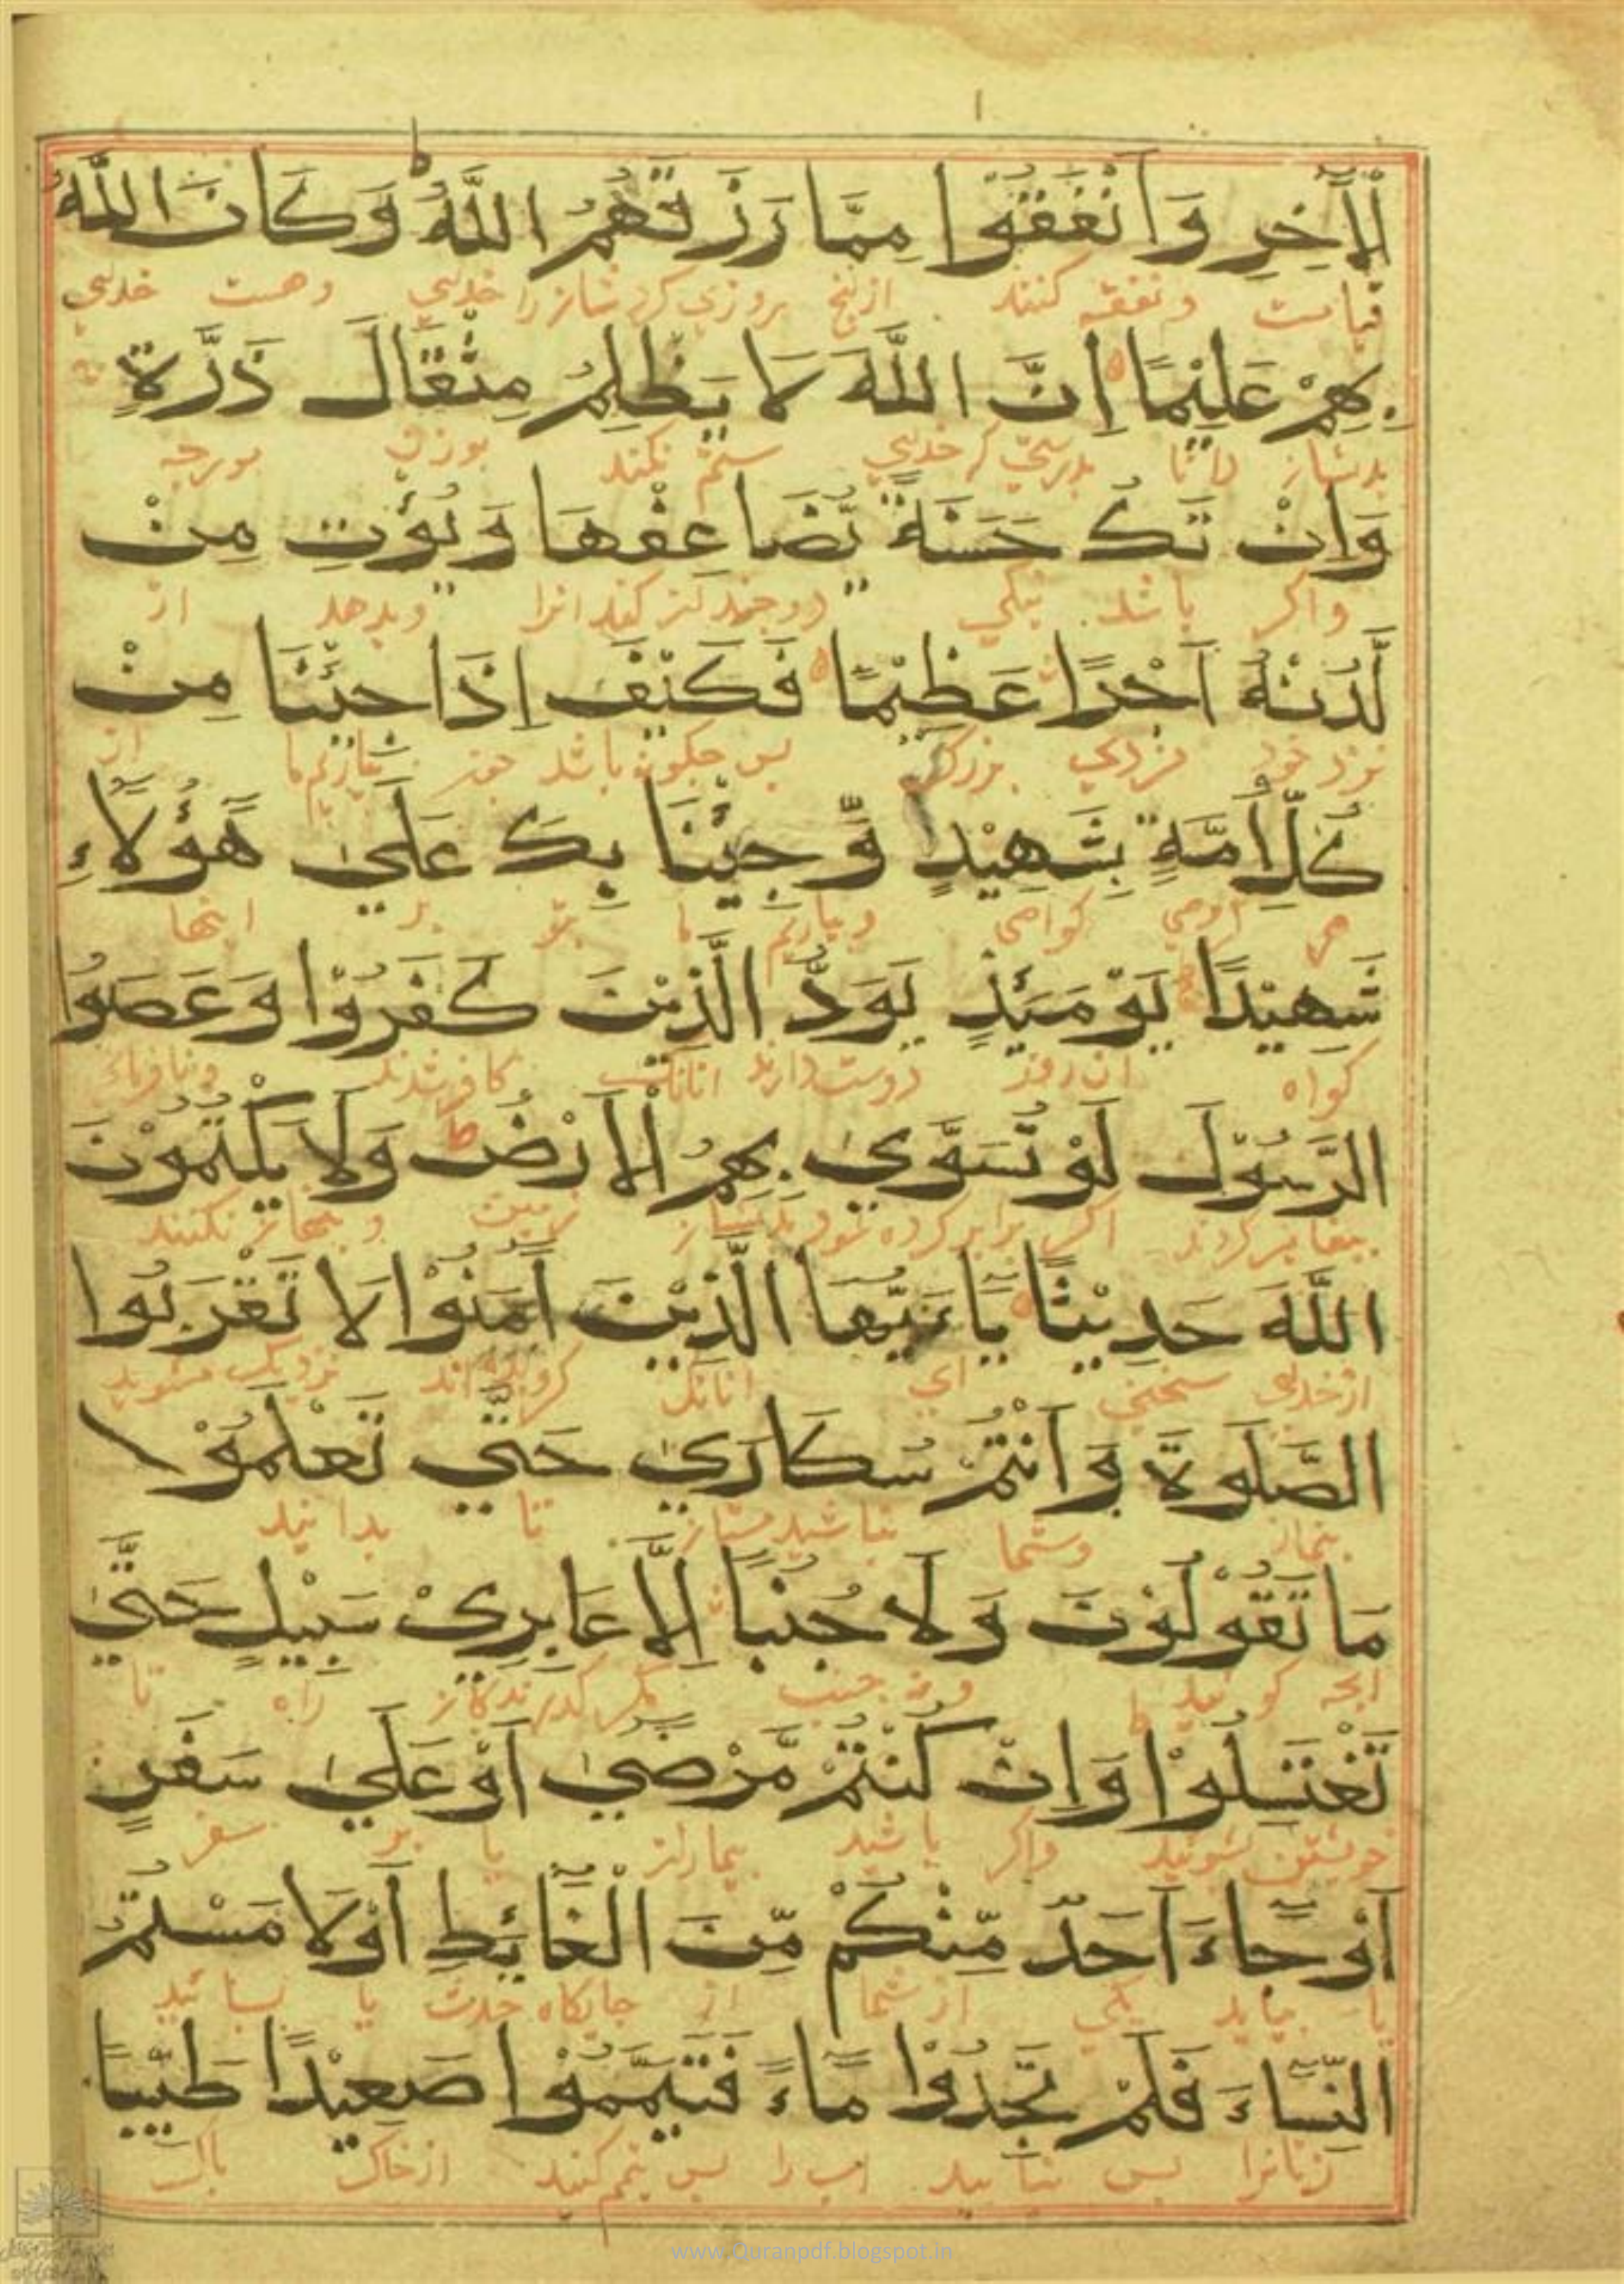 الْآخِرِ وَأَنْفَقُوا مِمَّا رَزَقَهُمُ اللَّهُ وَكَانَ اللَّهُ
قیامت ونفقه کنند ازانج روزی کرد شانرا خدای وهست خدای
بِهِمْ عَلِيْمًا اِنَّ اللَّهَ لَا يَظْلِمُ مِثْقَالَ ذَرَّةٍ
بدیشان دانا بدرستی که خدای ستم نکند بوزن مورچه
وَاِنْ تَكُ حَسَنَةً يُّضَاعِفْهَا وَيُؤْتِ مِنْ
واکر باشد نیکی دوچندان کند انرا وبدهد از
لَّدُنْهُ اَجْرًا عَظِيْمًا فَكَيْفَ اِذَا جِئْنَا مِنْ
نزد خود مزدی بزرک بس چکونه باشد چون بیاریم ما از
كُلِّ اُمَّةٍ بِشَهِيْدٍ وَّجِئْنَا بِكَ عَلَي هَؤُلَاءِ
هر کروهی کواهی وبیاریم ما بتو بر اینها
شَهِيْدًا يَوْمَئِذٍ يَوَدُّ الَّذِيْنَ كَفَرُوْا وَعَصَوُا
کواه ان روز دوست دارند انانک کافر شدند
الرَّسُوْلَ لَوْ تُسَوَّي بِهِمُ الْاَرْضُ وَلَا يَكْتُمُوْنَ
اکر برابر کرده شود بدیشان زمین و پنهان نکنند
اللَّهَ حَدِيْثًا يَا اَيُّهَا الَّذِيْنَ آمَنُوْا لَا تَقْرَبُوا
ازخدای سخنی ای انانک کرویده اند نزدیک مشوید
الصَّلَوةَ وَاَنْتُمْ سُكَارَي حَتَّي تَعْلَمُوْا
بنماز وشما نباشید مستان تا بدانید
مَا تَقُوْلُوْنَ وَلَا جُنُبًا اِلَّا عَابِرِيْ سَبِيْلٍ حَتَّي
انچه کوئید ونه جنب مکر کذرندکان راه تا
تَغْتَسِلُوْا وَاِنْ كُنْتُمْ مَّرْضَي اَوْ عَلَي سَفَرٍ
خویشتن بشوئید واکر باشید بیماران یا بر سفر
اَوْ جَاءَ اَحَدٌ مِّنْكُمْ مِّنَ الْغَائِطِ اَوْ لَامَسْتُمُ
یا بیاید یکی ازشما از جایکاه حدث یا بسائید
النِّسَاءَ فَلَمْ تَجِدُوْا مَاءً فَتَيَمَّمُوْا صَعِيْدًا طَيِّبًا
زنانرا بس نیابید اب را بس تیمم کنید ازخاک باک
www.Quranpdf.blogspot.in